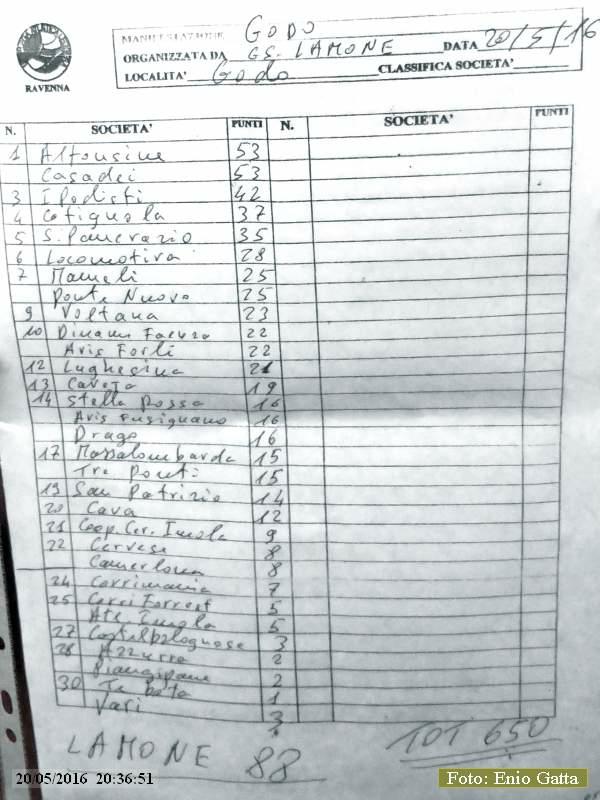 RAVENNA
MANIFESTAZIONE GODO
ORGANIZZATA DA GS. LAMONE DATA 20/5/16
LOCALITA' Godo CLASSIFICA SOCIETA'
N. SOCIETA' PUNTI N. SOCIETA' PUNTI
1 Alfonsine 53
Casadei 53
3 Ipodisti 42
4 Cotignola 37
5 S. Pancrazio 35
6 Locomotiva 28
7 Mameli 25
Ponte Nuovo 25
9 Voltana 23
10 Dinamo Faenza 22
Avis Forlì 22
12 Lughesina 21
13 Caveja 19
14 Stella Rossa 16
Avis Fusignano 16
Drago 16
17 Massalombarda 15
Tre Ponti 15
19 San Patrizio 14
20 Cava 12
21 Coop. Cer. Imola 9
22 Cervese 8
Camerlona 8
24 Corrimania 7
25 Corri Forrest 5
Atl. Imola 5
27 Castelbolognese 3
28 Azzurra 2
Piangipane 2
30 Te bota 1
Vari 3
LAMONE 88
TOT 650
20/05/2016 20:36:51
Foto: Enio Gatta